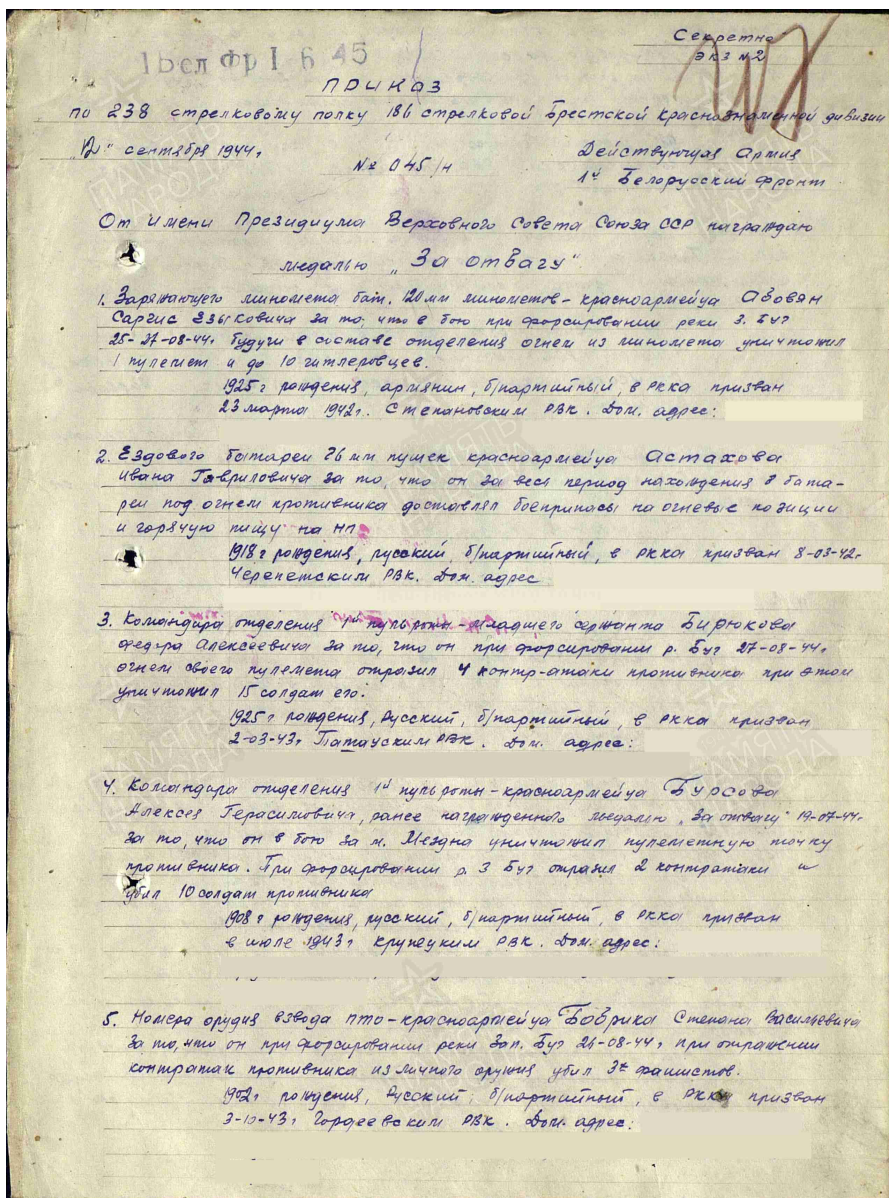 Секретно
экз №2
1 Бел Фр I 6 45
ПРИКАЗ
по 238 стрелковому полку 186 стрелковой Брестской краснознаменной дивизии
"12" сентября 1944г
№ 045/н
Действующая Армия
1й Белорусский Фронт
От имени Президиума Верховного Совета Союза ССР награждаю
медалью "За отвагу"
1. Заряжающего миномета бат. 120 мм минометов - красноармейца Абовян
Саргис за то, что в бою при форсировании реки З. Буг
25-27-08-44г будучи в составе отделения огнем из миномета уничтожил
1 пулемет и до 10 гитлеровцев.
1925г рождения, армянин, б/партийный, в РККА призван
23 марта 1942г. Степановским РВК. Дом. адрес:
2. Ездового батареи 76 мм пушек красноармейца Астахова
Ивана Гавриловича за то, что он за весь период нахождения в бата-
реи под огнем противника доставлял боеприпасы на огневые позиции
и горячую пищу на НП.
1918г рождения, русский, б/партийный, в РККА призван 8-03-42г
Черепетским РВК. Дом. адрес
3. Командира отделения 1й пульроты - младшего сержанта Бирюкова
Федора Алексеевича за то, что он при форсировании р. Буг 27-08-44г
огнем своего пулемета отразил 4 контр-атаки противника при этом
уничтожил 15 солдат его.
1925г рождения, Русский, б/партийный, в РККА призван
2-03-43г РВК. Дом. адрес:
4. Командира отделения 1й пульроты - красноармейца Бурсова
Алексея Герасимовича, ранее награжденного медалью "За отвагу" 19-07-44г
за то, что он в бою за м. Мездна уничтожил пулеметную точку
противника. При форсировании р. З Буг отразил 2 контратаки и
убил 10 солдат противника
1908г рождения, русский, б/партийный, в РККА призван
в июле 1943г Крупецким РВК. Дом. адрес:
5. Номера орудия взвода ПТО - красноармейца Боврика Степана Васильевича
за то, что он при форсировании реки Зап. Буг 24-08-44г при отражении
контратак противника из личного оружия убил 3х фашистов.
1902г рождения, Русский, б/партийный, в РККА призван
3-10-43г Гордеевским РВК. Дом. адрес: